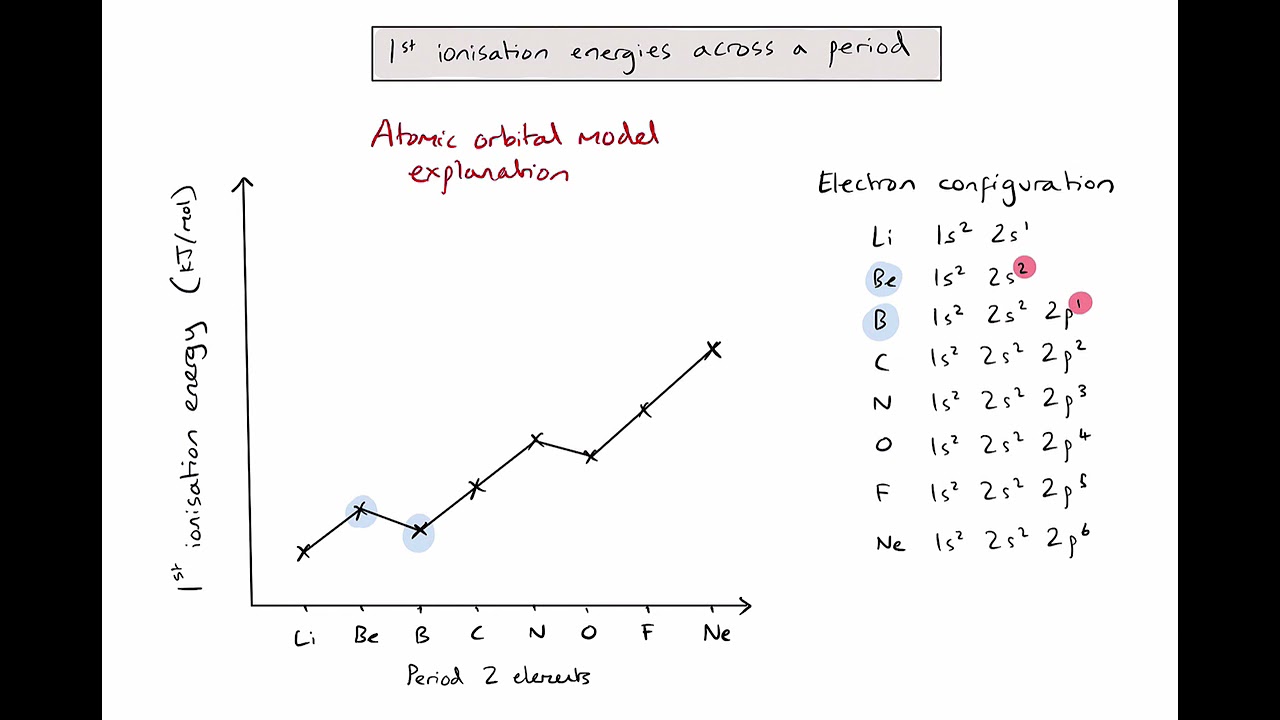 1st ionisation energies across a period
Atomic orbital model
explanation
1st ionisation energy (kJ/mol)
Li Be B C N O F Ne
Period 2 elements
Electron configuration
Li 1s² 2s¹
Be 1s² 2s²
B 1s² 2s² 2p¹
C 1s² 2s² 2p²
N 1s² 2s² 2p³
O 1s² 2s² 2p⁴
F 1s² 2s² 2p⁵
Ne 1s² 2s² 2p⁶